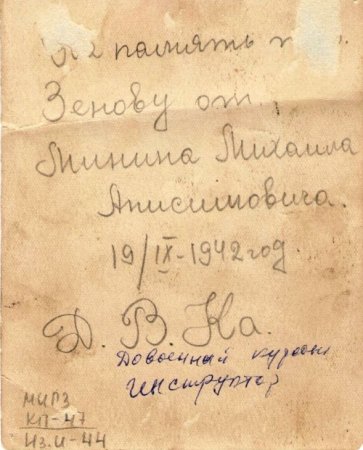 На память
Зенову от
Минина Михаила
Анисимовича.
19/IX-1942 год.
Д. В. Ка.
Довоенный
инструктор
МИРЗ
КП-47
Из.И-44